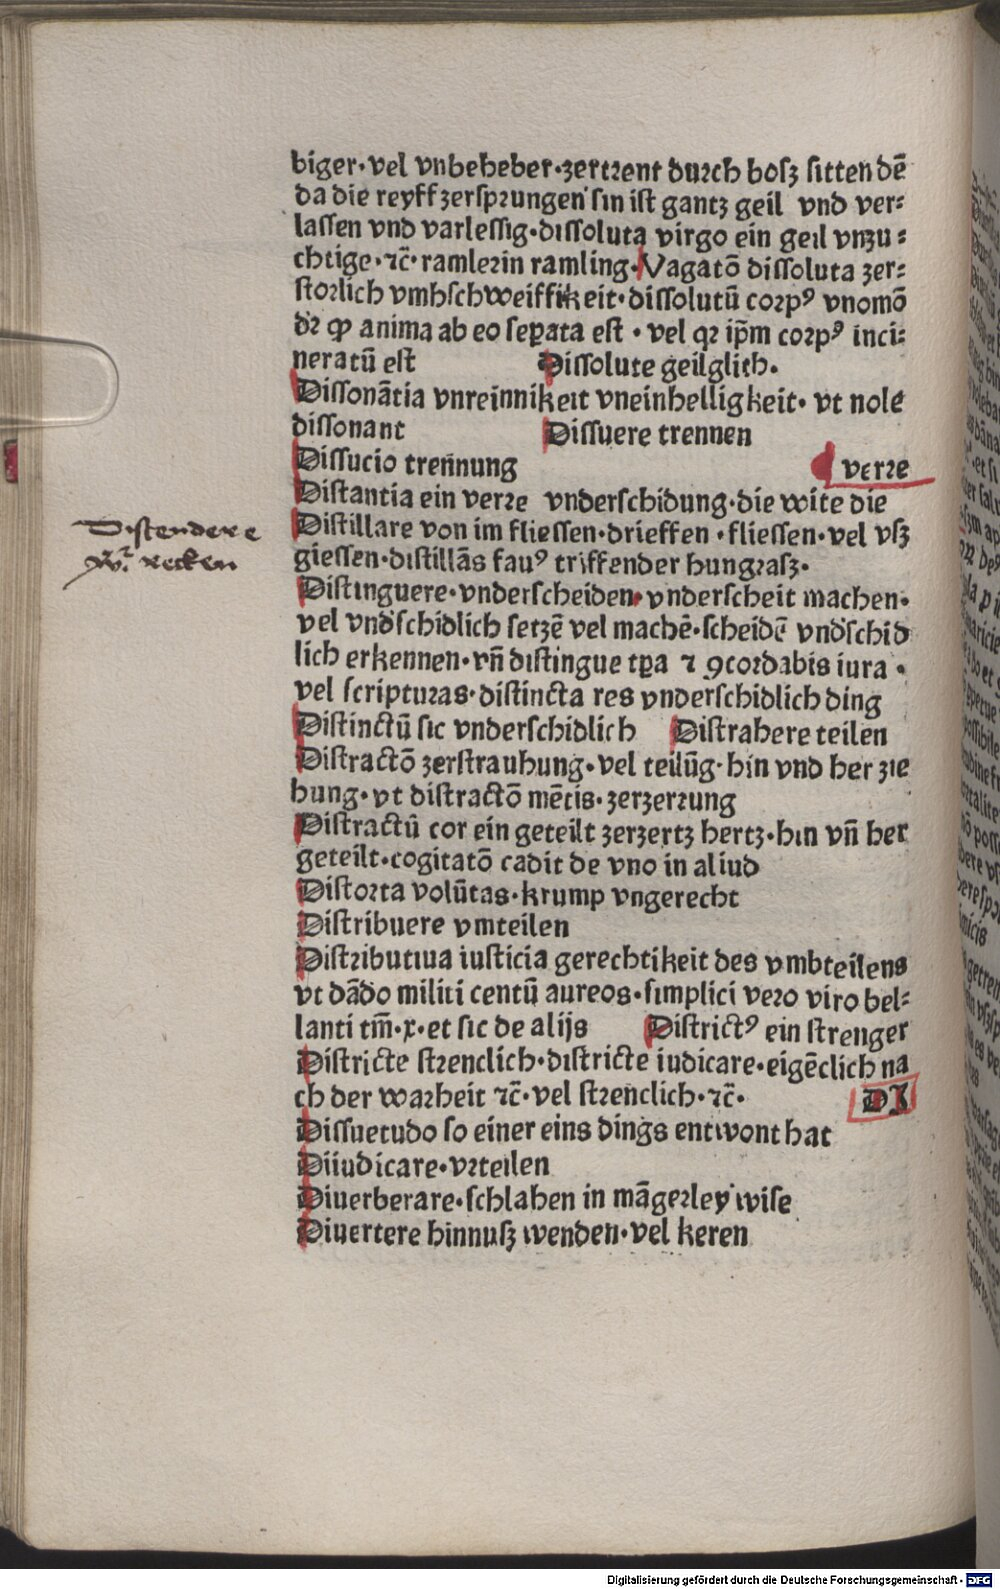 biger·vel vnbeheber·zertrent durch bosz sitten dē
da die reyff zersprungen sin ist gantz geil vnd ver⸗
lassen vnd varlessig·dissoluta virgo ein geil vnzu⸗
chtige·⁊c̄·ramlerin ramling·Vagatō dissoluta zer⸗
storlich vmhschweiffikeit·dissolutū corpꝰ vnomō
dr̄ ꝙ anima ab eo seꝑata est·vel qꝛ ip̄m corpꝰ inci⸗
neratū est Dissolute geilglich·
Dissonātia vnreinnikeit vneinhelligkeit·vt nole
dissonant Dissuere trennen
Dissucio treñnung verre
Distantia ein verre vnderschidung·die wite die
Distillare von im fliessen·drieffen·fliessen·vel vsz
giessen·distillās fauꝰ triffender hungrasz·
Distendere
recken
Distinguere·vnderscheiden·vnderscheit machen·
vel vnd'schidlich setzē vel machē·scheidē vnd'schid
lich erkennen·vn̄ distingue tꝑa ⁊ ꝯcordabis iura·
vel scripturas·distincta res vnderschidlich ding
Distinctū sic vnderschidlich Distrahere teilen
Distractō zerstrauhung·vel teilūg·hin vnd her zie
hung·vt distractō mētis·zerzerrung
Distractū cor ein geteilt zerzertz hertz·hin vn̄ her
geteilt·cogitatō cadit de vno in aliud
Distorta volūtas·krump vngerecht
Distribuere vmteilen
Distributiua iusticia gerechtikeit des vmbteilens
vt dādo militi centū aureos·simplici vero viro bel⸗
lanti tm̄·x·et sic de alijs Districtꝰ ein strenger
Districte strenclich·districte iudicare·eigēclich na
ch der warheit ⁊c̄·vel strenclich·⁊c̄· DI
Dissuetudo so einer eins dings entwont hat
Diiudicare·vrteilen
Diuerberare·schlahen in māgerley wise
Diuertere hinnusz wenden·vel keren
Digitalisierung gefördert durch die Deutsche Forschungsgemeinschaft - DFG